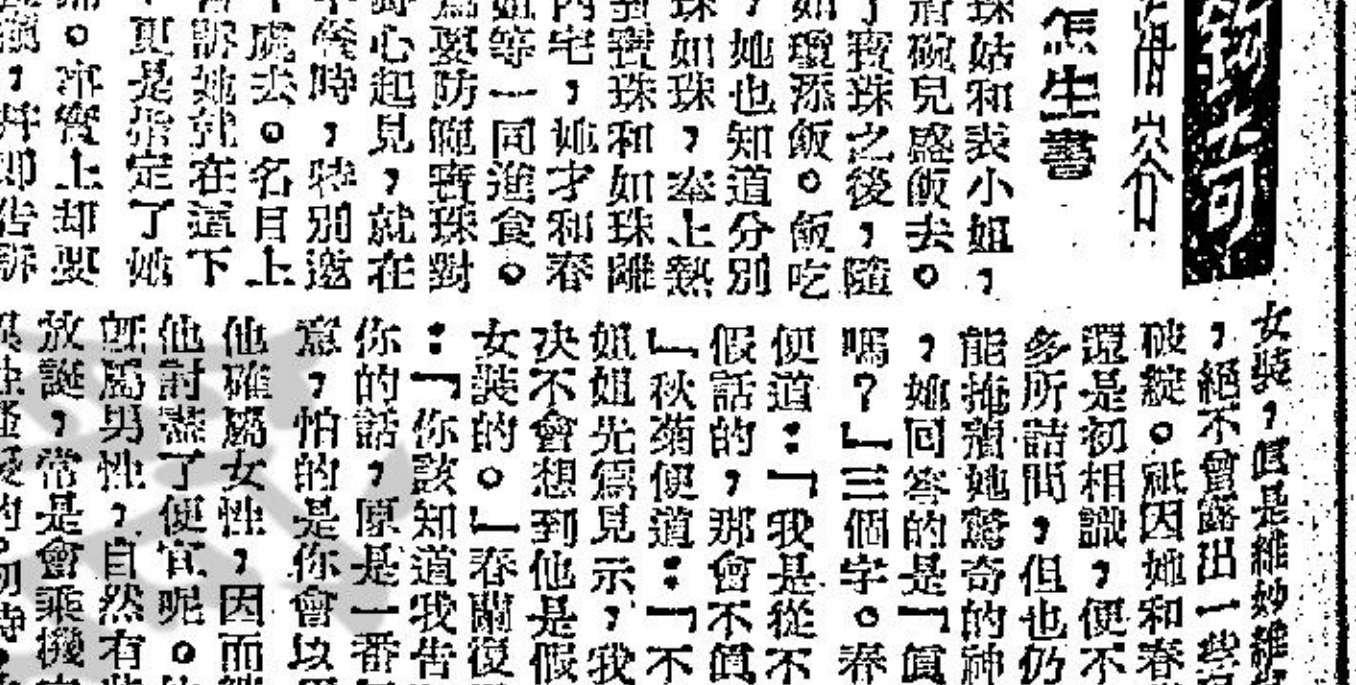 怎生書
珠姑和表小姐，
碗兒盛飯去。
了寶珠之後，隨
如瓊添飯。飯吃
，她也知道分別
珠如珠，奉上熱
寶珠和如珠離
內宅，她才和春
姐等一同進食。
為要防範寶珠對
心起見，就在
時，特別邀
處去。名目上
訴她就在這下
，更是指定了她
。事實上却要
，幷即告訴
女裝，眞是維妙維
，絕不會露出一些
破綻。祇因她和春
還是初相識，便不
多所詰問，但也仍
能掩藏她驚奇的神
，她回答的是「眞
嗎？」三個字。春
便道：「我是從不
假話的，那會不眞
」秋菊便道：「不
姐姐先為見示，我
决不會想到他是假
女裝的。」春蘭復
：「你該知道我告
你的話，原是一番
意，怕的是你會以
他確屬女性，因而
他討盡了便宜呢。
旣屬男性，自然有
放誕，常是會乘機